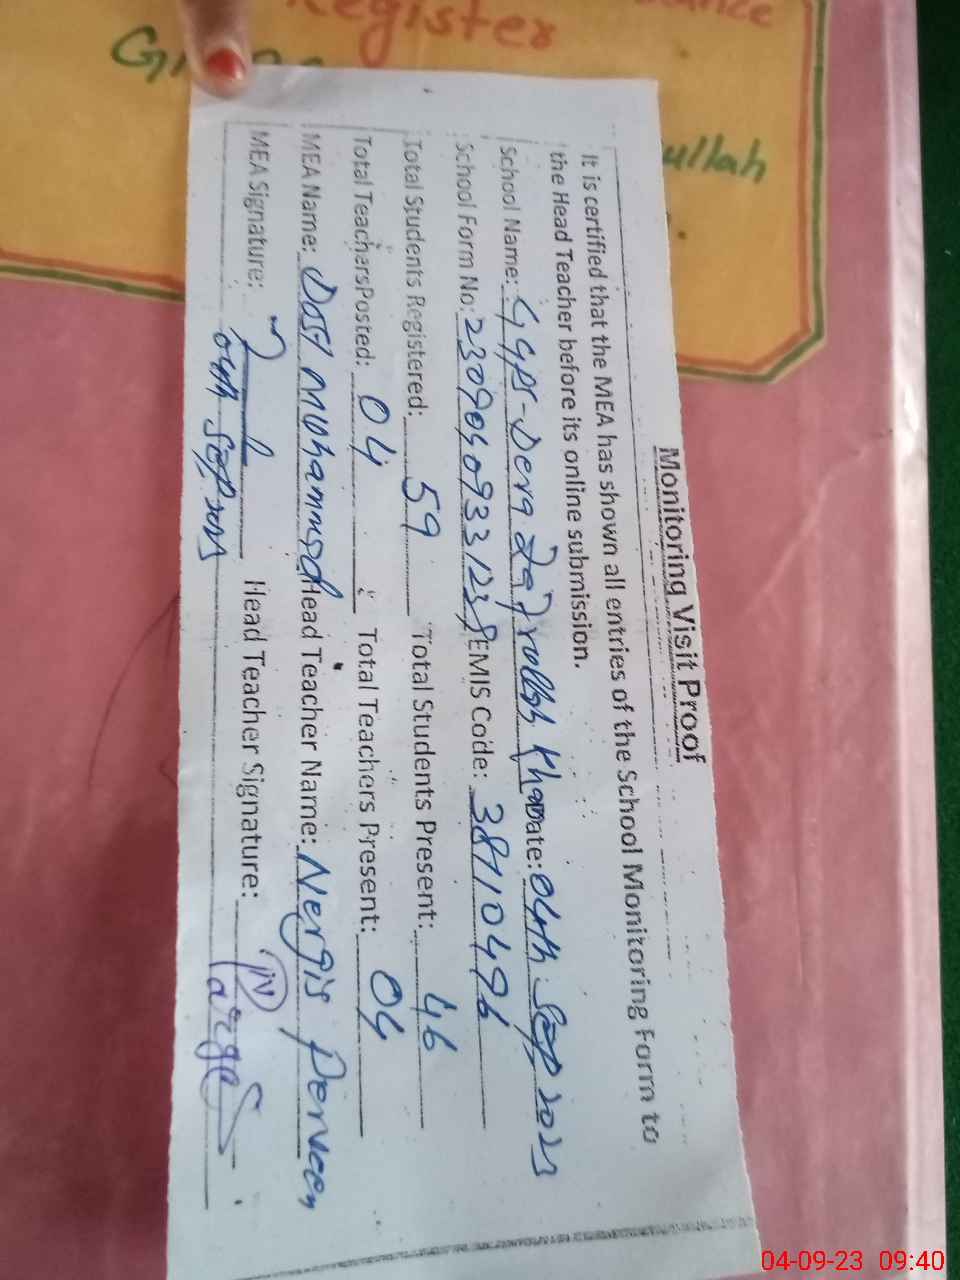 Register
ullah
Monitoring Visit Proof
It is certified that the MEA has shown all entries of the School Monitoring Form to
the Head Teacher before its online submission.
School Name: GGPS-Dera Zafrullah Khan Date: 04th Sep 2023
School Form No: EMIS Code: 38710496
Total Students Registered: 59 Total Students Present: 46
Total Teachers Posted: 04 Total Teachers Present: 04
MEA Name: Dost Muhammad Head Teacher Name: Nergis Perveen
MEA Signature: Head Teacher Signature:
04th Sep 2023
04-09-23 09:40